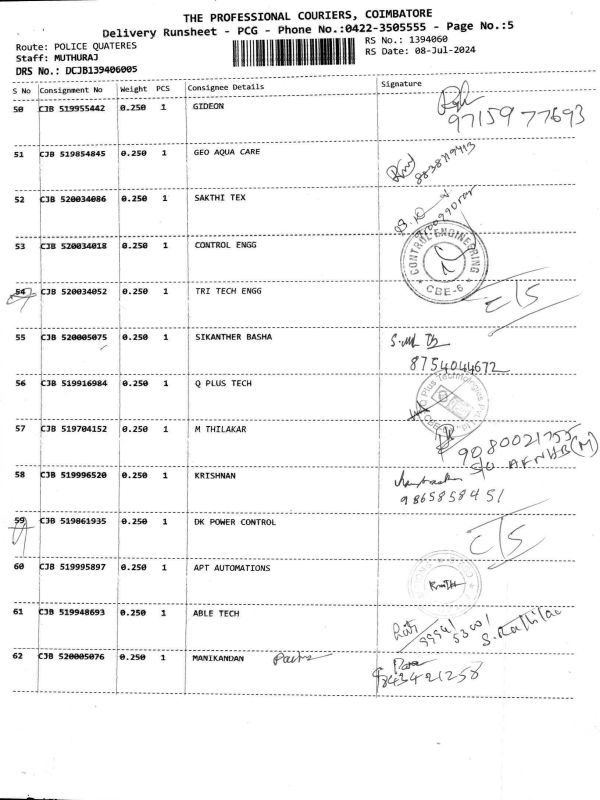 THE PROFESSIONAL COURIERS, COIMBATORE
Delivery Runsheet - PCG - Phone No.:0422-3505555 - Page No.:5
Route: POLICE QUATERES
RS No.: 1394060
Staff: MUTHURAJ
RS Date: 08-Jul-2024
DRS No.: DCJB139406005
S No Consignment No Weight PCS Consignee Details Signature
50 CJB 519955442 0.250 1 GIDEON
9715977693
51 CJB 519854845 0.250 1 GEO AQUA CARE
52 CJB 520034086 0.250 1 SAKTHI TEX
53 CJB 520034018 0.250 1 CONTROL ENGG
CONTROL ENGINEERING
CBE-6
54 CJB 520034052 0.250 1 TRI TECH ENGG
C/S
55 CJB 520005075 0.250 1 SIKANTHER BASHA
8754044672
56 CJB 519916984 0.250 1 Q PLUS TECH
57 CJB 519704152 0.250 1 M THILAKAR
9080021755
58 CJB 519996520 0.250 1 KRISHNAN
9865858451
59 CJB 519861935 0.250 1 DK POWER CONTROL
C/S
60 CJB 519995897 0.250 1 APT AUTOMATIONS
61 CJB 519948693 0.250 1 ABLE TECH
62 CJB 520005076 0.250 1 MANIKANDAN